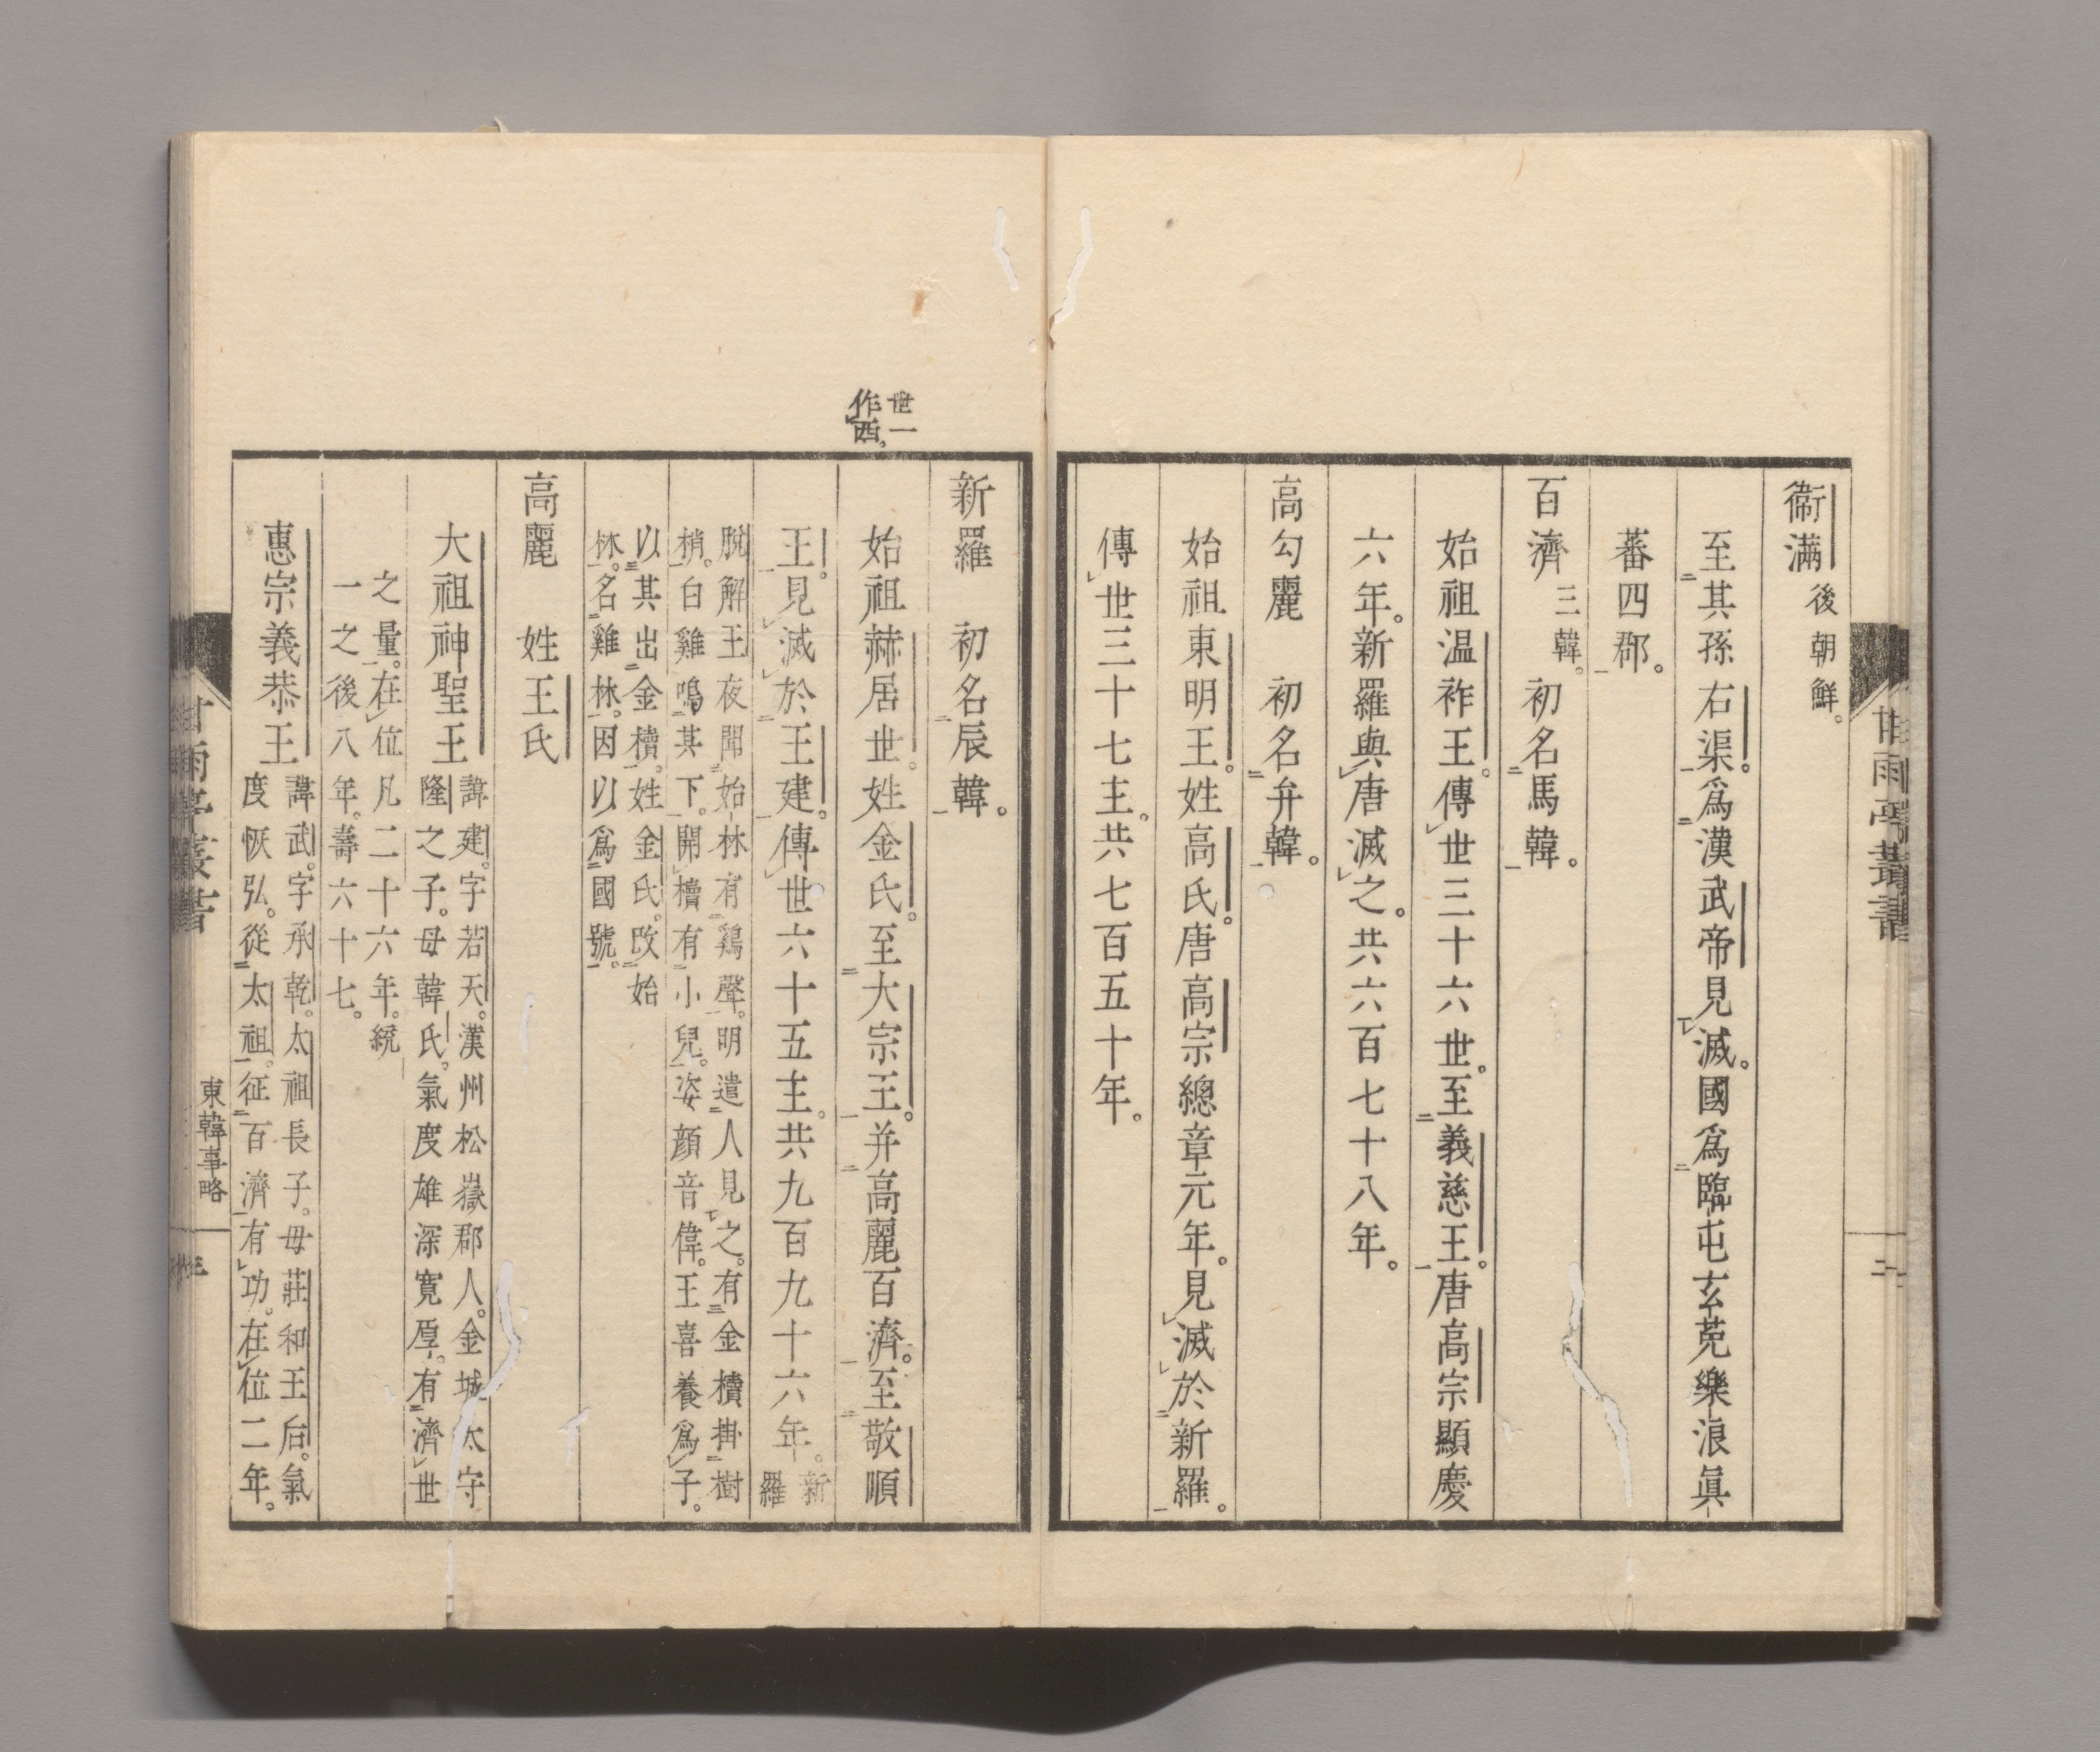 衞滿後朝鮮。
至其孫右渠。爲漢武帝見滅。國爲臨屯玄菟樂浪眞
蕃四郡。
百濟三韓。初名馬韓。
始祖温祚王。傳世三十六世。至義慈王。唐高宗顯慶
六年。新羅與唐滅之。共六百七十八年。
高勾麗　初名弁韓。
始祖東明王。姓高氏。唐高宗總章元年。見滅於新羅。
傳世三十七主。共七百五十年。
甘雨亭叢書
二
世一
作西。
新羅　初名辰韓。
始祖赫居世。姓金氏。至大宗王。并高麗百濟。至敬順
王。見滅於王建。傳世六十五主。共九百九十六年。新
羅
脫解王夜聞始林有鷄聲。明遣人見之。有金櫝掛樹
梢。白雞鳴其下。開櫝有小兒。姿顏音偉。王喜養爲子。
以其出金櫝。姓金氏。改始
林。名雞林。因以爲國號。
高麗　姓王氏
大祖神聖王諱建。字若天。漢州松嶽郡人。金城太守
隆之子。母韓氏。氣度雄深寬厚。有濟世
之量。在位凡二十六年。統
一之後八年。壽六十七。
惠宗義恭王諱武。字承乾。太祖長子。母莊和王后。氣
度恢弘。從太祖。征百濟有功。在位二年。
甘雨亭叢書
東韓事略
三